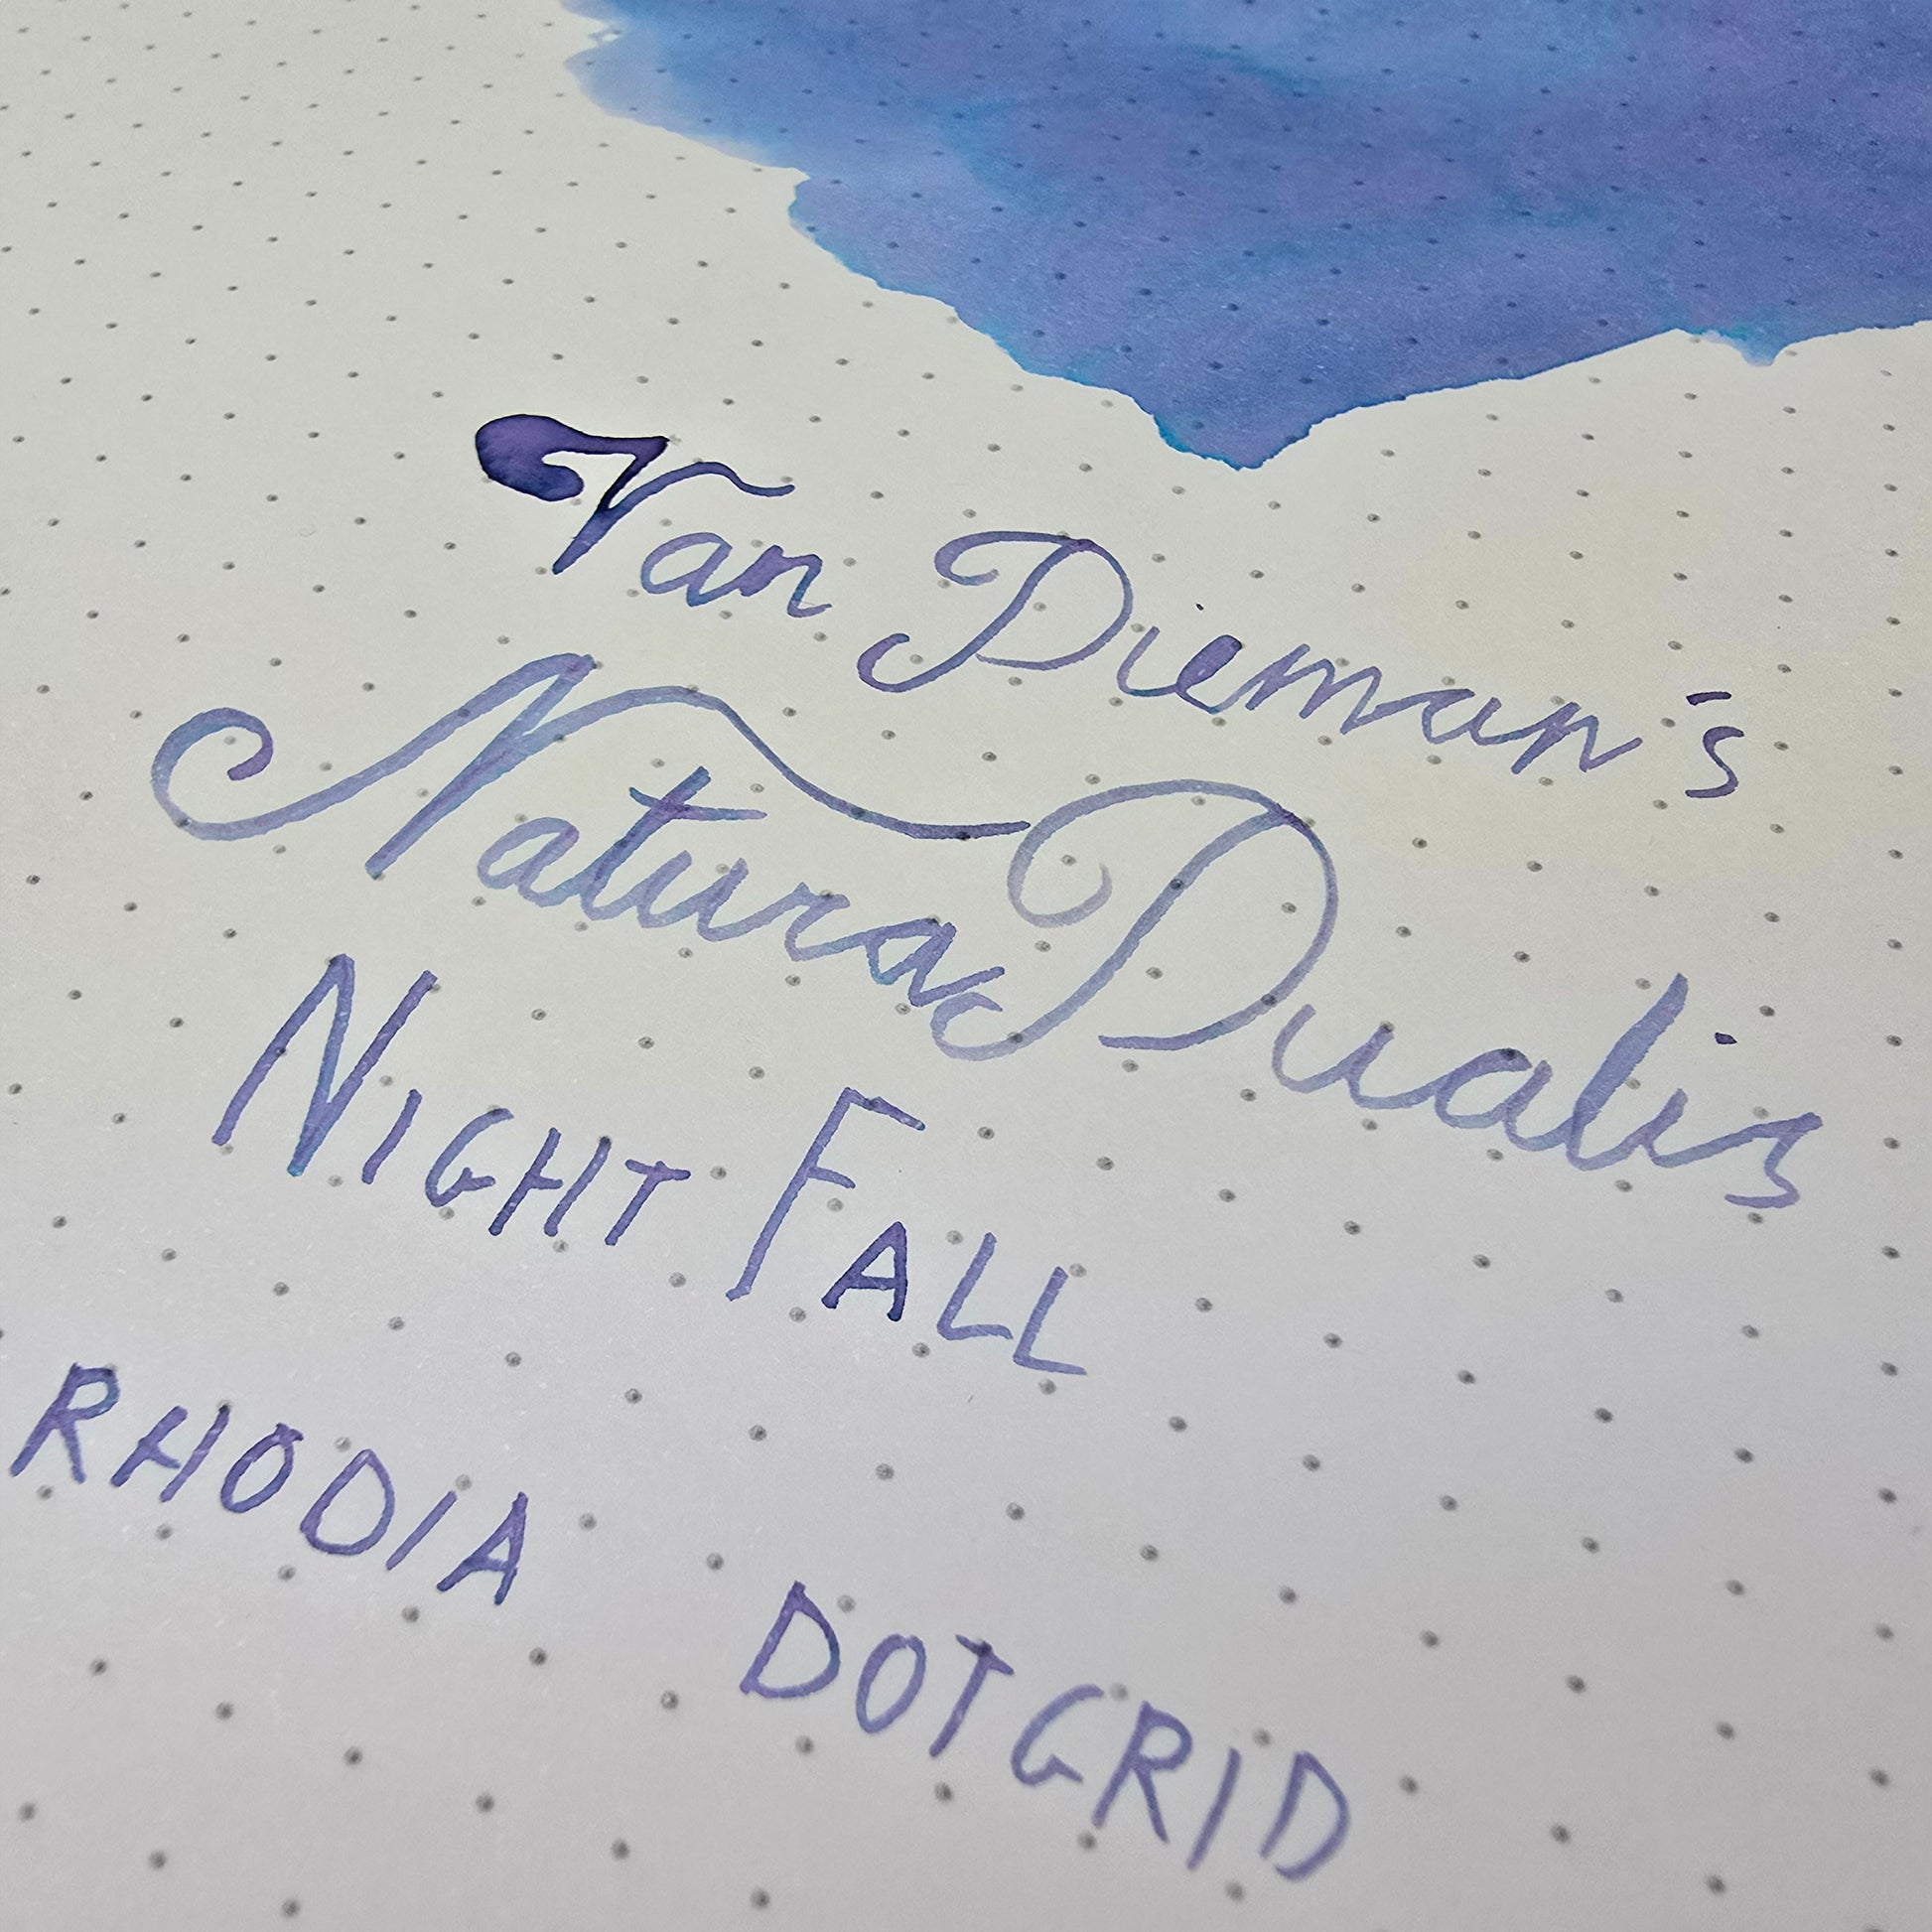 Van Dieman's
Natura Dualis
NIGHT FALL
RHODIA DOTGRID